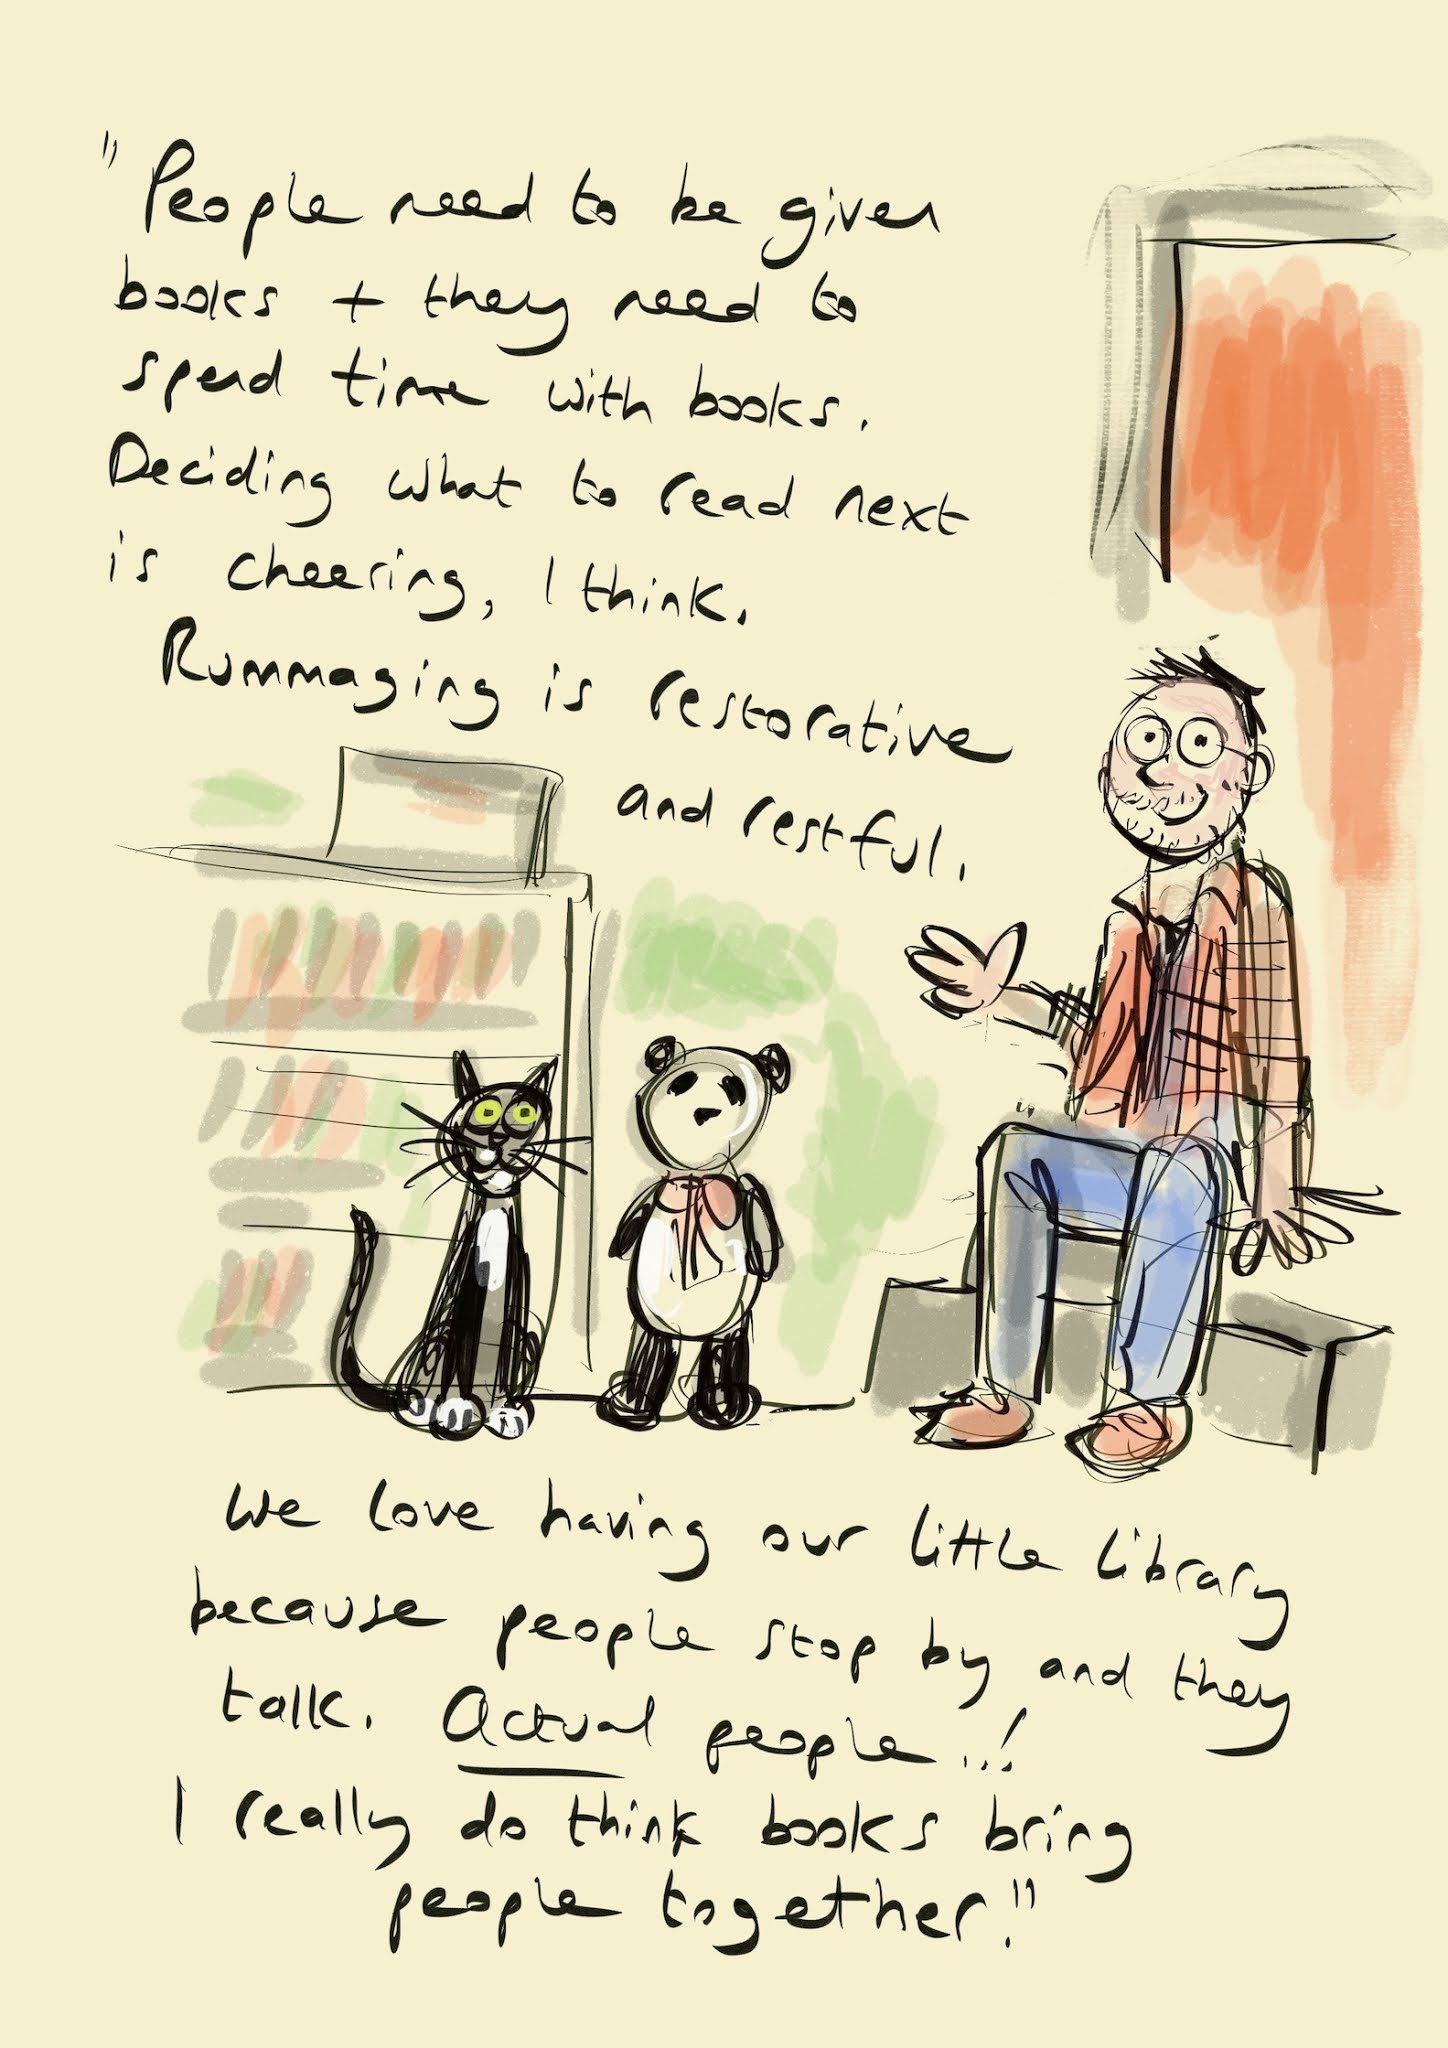 "People need to be given
books + they need to
spend time with books.
Deciding what to read next
is cheering, I think.
Rummaging is restorative
and restful.
We love having our little library
because people stop by and they
talk. Actual people...!
I really do think books bring
people together!"